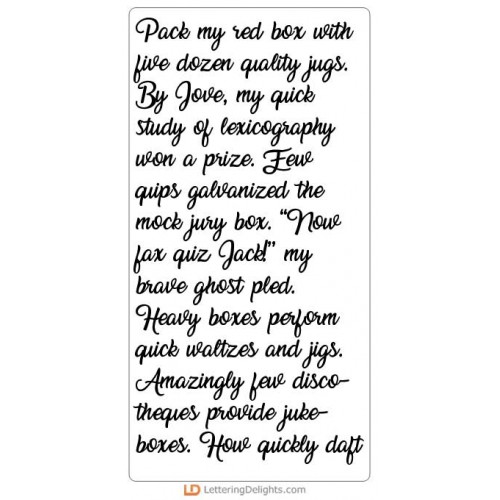 Pack my red box with
five dozen quality jugs.
By Jove, my quick
study of lexicography
won a prize. Few
quips galvanized the
mock jury box. “Now
fax quiz Jack!” my
brave ghost pled.
Heavy boxes perform
quick waltzes and jigs.
Amazingly few disco-
theques provide juke-
boxes. How quickly daft
LD LetteringDelights.com